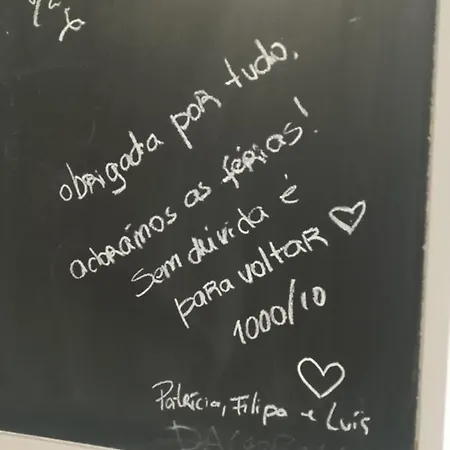 obrigada por tudo,
adorámos as férias!
Sem dúvida é
para voltar ♡
1000/10
♡
Patrícia, Filipa e Luís